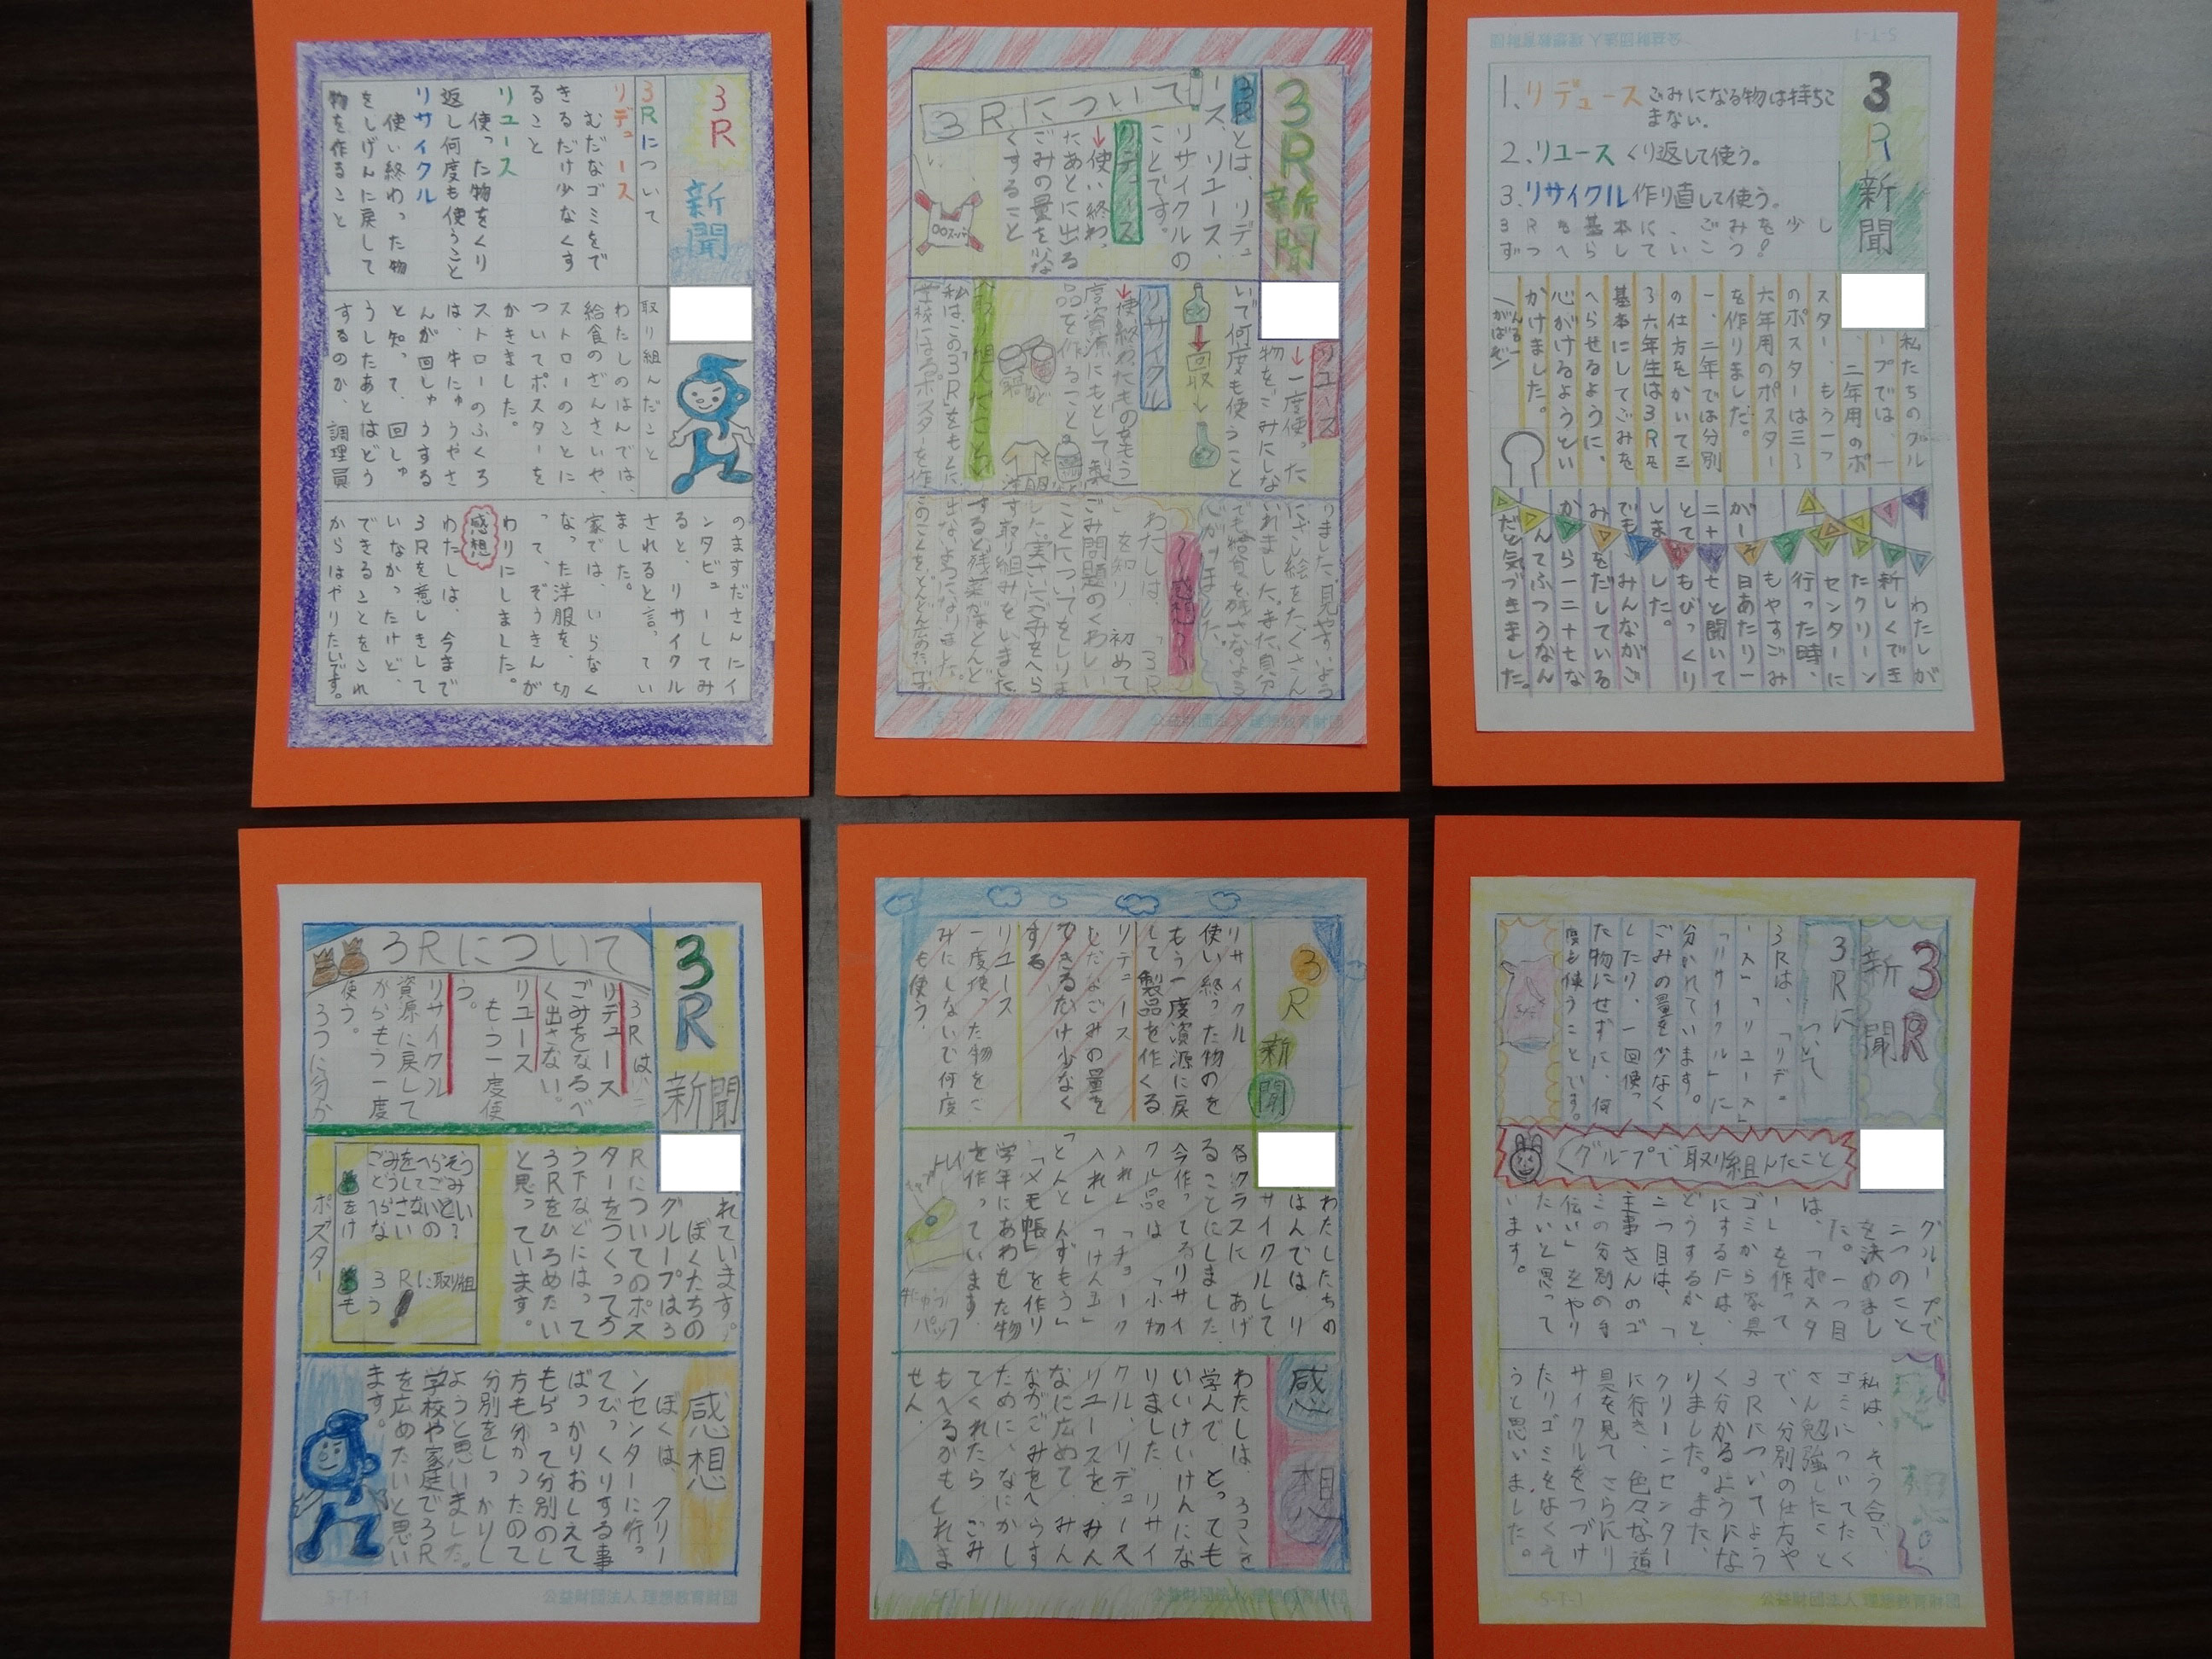 3R
新聞
3Rについて
リデュース
むだなゴミをで
きるだけ少なくす
ること
リユース
使った物をくり
返し何度も使うこと
リサイクル
使い終わった物
をしげんに戻して
物を作ること
取り組んだこと
わたしのはんでは、
給食のざんさいや、
ストローのことに
ついてポスターを
かきました。
ストローのふくろ
は、牛にゅうやさ
んが回しゅうする
と知って、回しゅ
うしたあとはどう
するのか、調理員
のますださんにイ
ンタビューしてみ
ると、リサイクル
されると言ってい
ました。
家では、いらなく
なった洋服を、切
って、ぞうきんが
わりにしました。
感想
わたしは、今まで
3Rを意しきして
いなかったけど、
できることをこれ
からはやりたいです。
3R新聞
3Rについて
3Rとは、リデュ
ース、リユース、
リサイクルの
ことです。
リデュース
↓使い終わっ
たあとに出る
ごみの量を少な
くすること
○○スーパー
リユース
↓一度使った
物を、ごみにしな
いで何度も使うこと
回収
リサイクル
↓使終わたものをもう一
度資源にもとして製
品を作ること
取り組んだこと
私は、この「3R」をもとに、
学校にはるポスターを作
りました。見やすいよう
にさし絵をたくさん
いれました。また、自分
でも給食を残さないよう
〜感想〜
わたしは、「3R
」を知り、初めて
ごみ問題のくわしい
ことについてをしりま
した。実さいにごみをへら
す取り組みをしました。
すると残菜がほとんど
出なようになりました。
このことをどんどん広めたいです。
3R新聞
1.リデュース ごみになる物は持ちこ
まない.
2.リユース くり返して使う。
3.リサイクル 作り直して使う。
3Rを基本にして、ごみを少し
ずつへらしていこう!
私たちのグル
ープでは、一
、二年用のポ
スター、もう一つ
のポスターは三〜
六年用のポスター
を作りました。
一、二年では分別
の仕方をかいて三
〜六年生は3Rを
基本にしてごみを
へらせるように、
心がけるようとい
かけました。
わたしが
新しくでき
たクリーン
センターに
行った時、
もやすごみ
が一日あたり一
二十七と聞いて
とてもびっくり
しました。
でも、みんながご
みをだしている
から一二十七な
んてふつうなん
だと気づきました。
3R新聞
3Rについて
3Rは、
リデュース
ごみをなるべ
く出さない。
リユース
もう一度使
う。
リサイクル
資源に戻して
からもう一度
使う。
3つに分か
れています。
ぼくたちの
グループは3
Rについてのポス
ターをつくってろ
う下などにはって
3Rをひろめたい
と思っています。
ごみをへらそう
ポスター
感想
ぼくは、クリー
ンセンターに行っ
てびっくりする事
ばっかりおしえて
もらって分別のし
方も分かったので
分別をしっかりし
ようと思いました。
学校や家庭で3R
を広めたいと思い
ます。
3R新聞
リサイクル
使い終った物のを
もう一度資源に戻
して製品を作くる
リデュース
むだなごみの量を
できるだけ少なく
する
リユース
一度使った物をご
みにしないで何度
も使う.
わたしたちの
はんでは、リ
サイクルして
各クラスにあげ
ることにしました.
今作ってるリサイ
クル品は「小物
入れ」「チョーク
入れ」「けん玉」
「とんとんずもう」
「メモ帳」を作り
学年にあわせた物
を作っています.
牛にゅうパック
感想
わたしは、3Rを
学んでとっても
いいけいけんにな
りました.リサイ
クル、リデュース
リユースを、みん
なに広めてみん
ながごみをへらす
ために、なにかし
てくれたらごみ
もへるかもしれま
せん.
3R新聞
3Rについて
3Rは、「リデュ
ース」「リユース」
「リサイクル」に
分かれています。
ごみの量を少なく
したり、一回使っ
た物にせずに、何
度も使うことです。
グループで取り組んだこと
グループで
二つのこと
を決めまし
た。一つ目
は、「ポスタ
ー」を作って
ゴミから家具
にするには、
どうするかと、
二つ目は、「
主事さんのゴ
ミの分別の手
伝い」をやり
たいと思って
います。
私は、そう合で、
ゴミについてたく
さん勉強したこと
で、分別の仕方や
3Rについてよう
く分かるようにな
りました。また、
クリーンセンター
に行き、色々な道
具を見てさらにリ
サイクルをつづけ
たりゴミをなくそ
うと思いました。
S-T-1
公益財団法人 理想教育財団